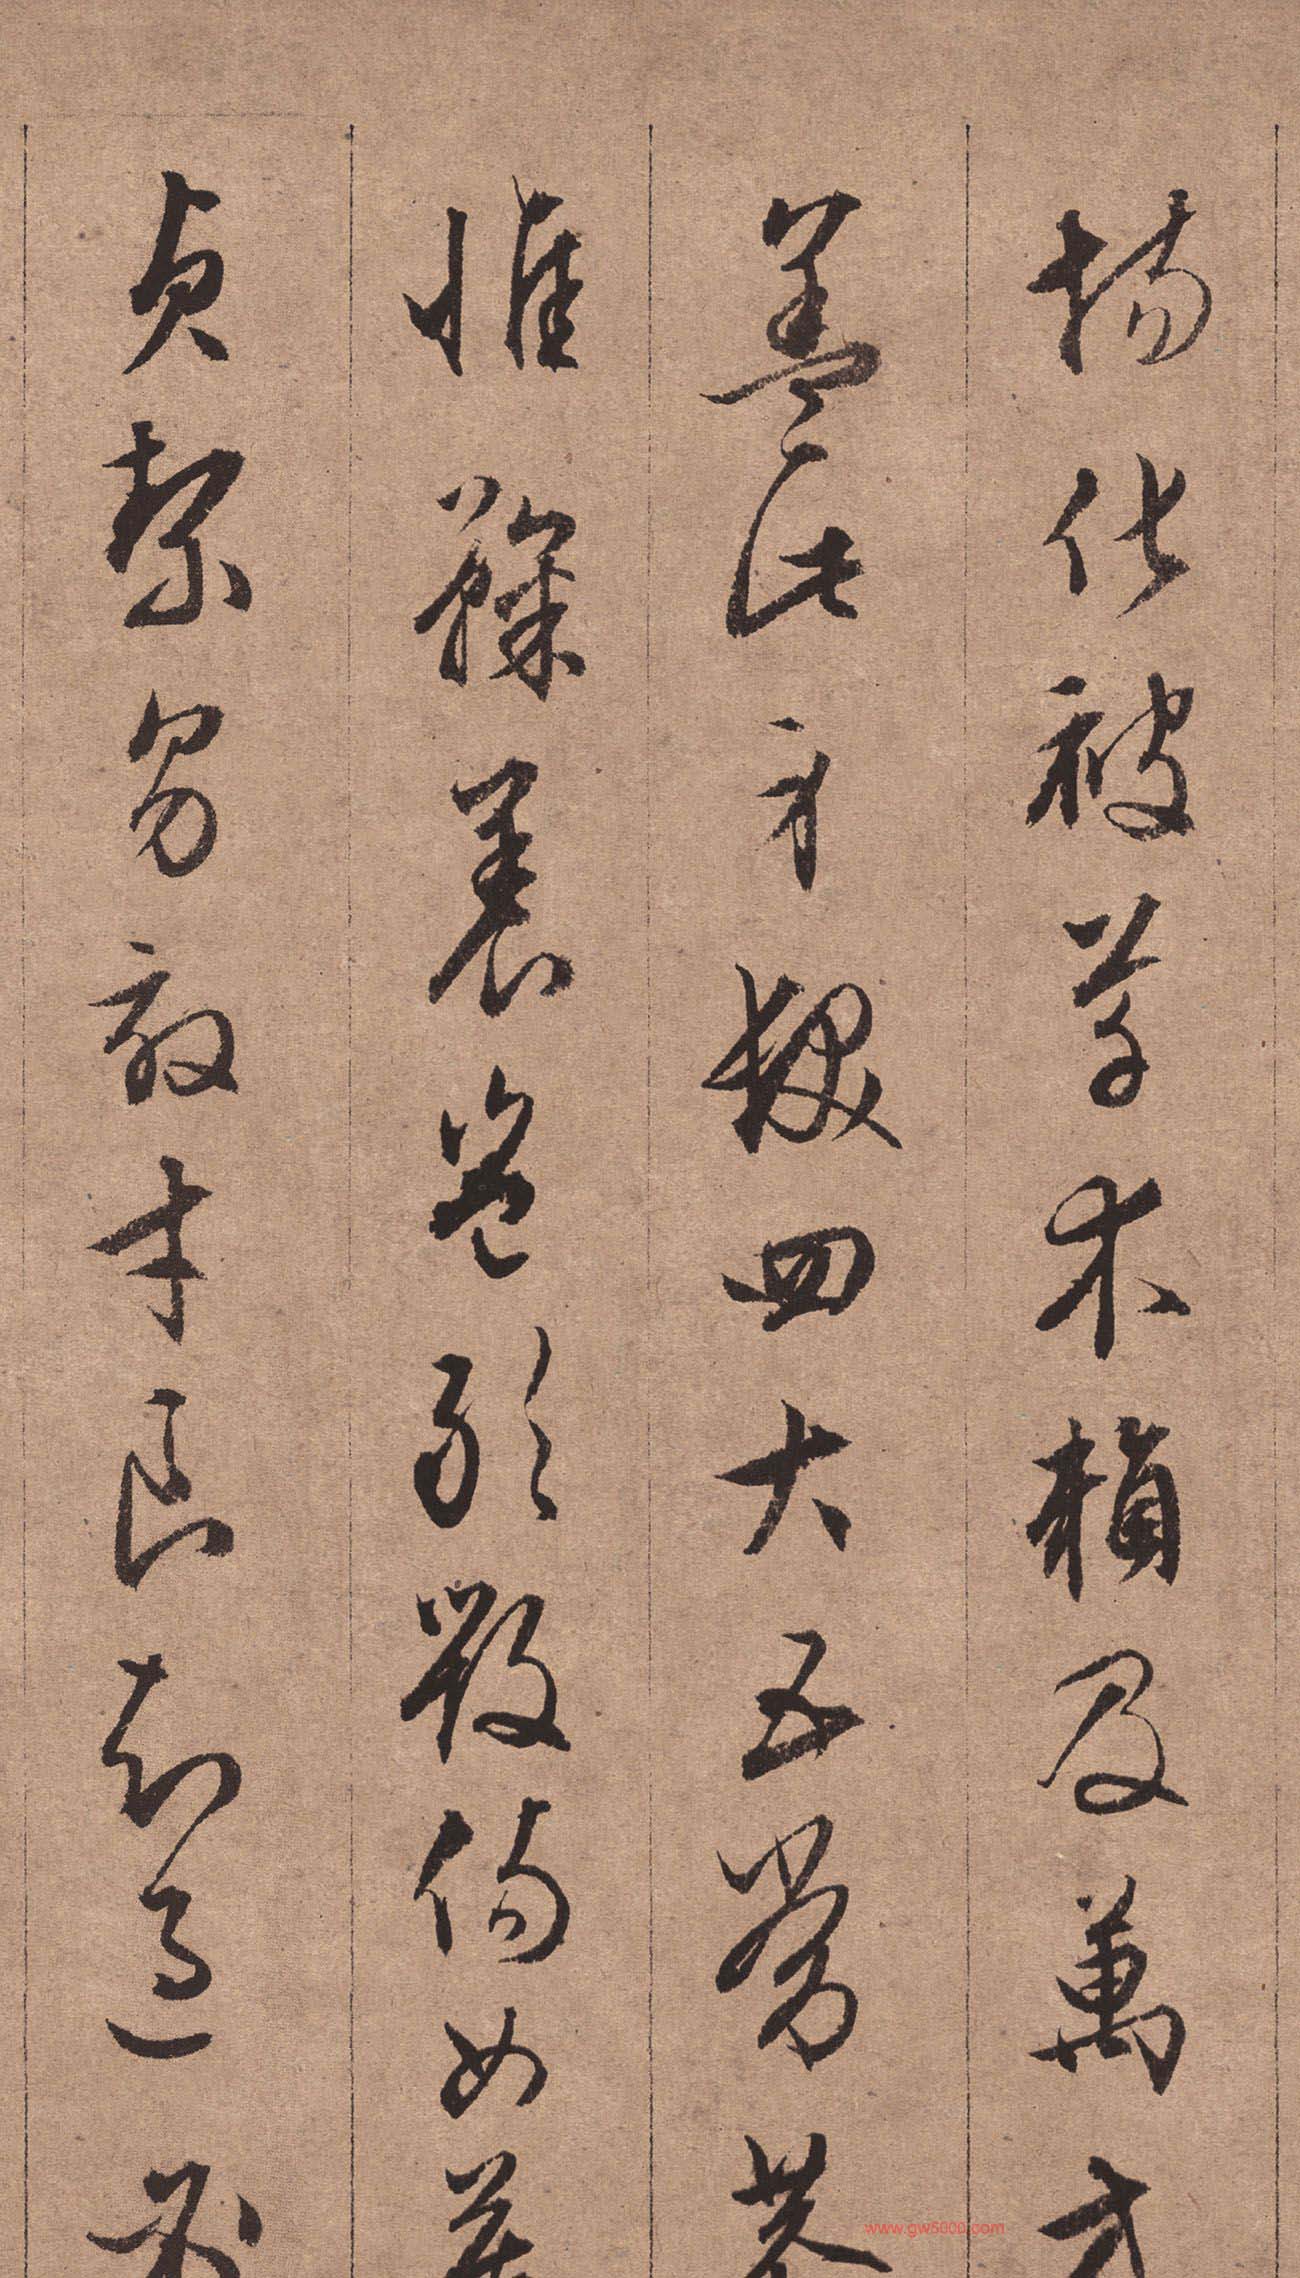 場化被草木賴及萬方
蓋此身髮四大五常恭
惟鞠養豈敢毀傷女慕
貞絜男效才良知過必
www.gw5000.com